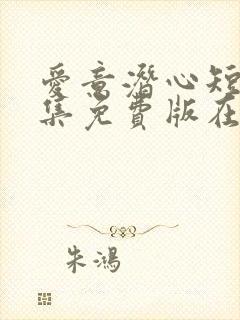 爱意潜心短
集免费版在
朱鸿